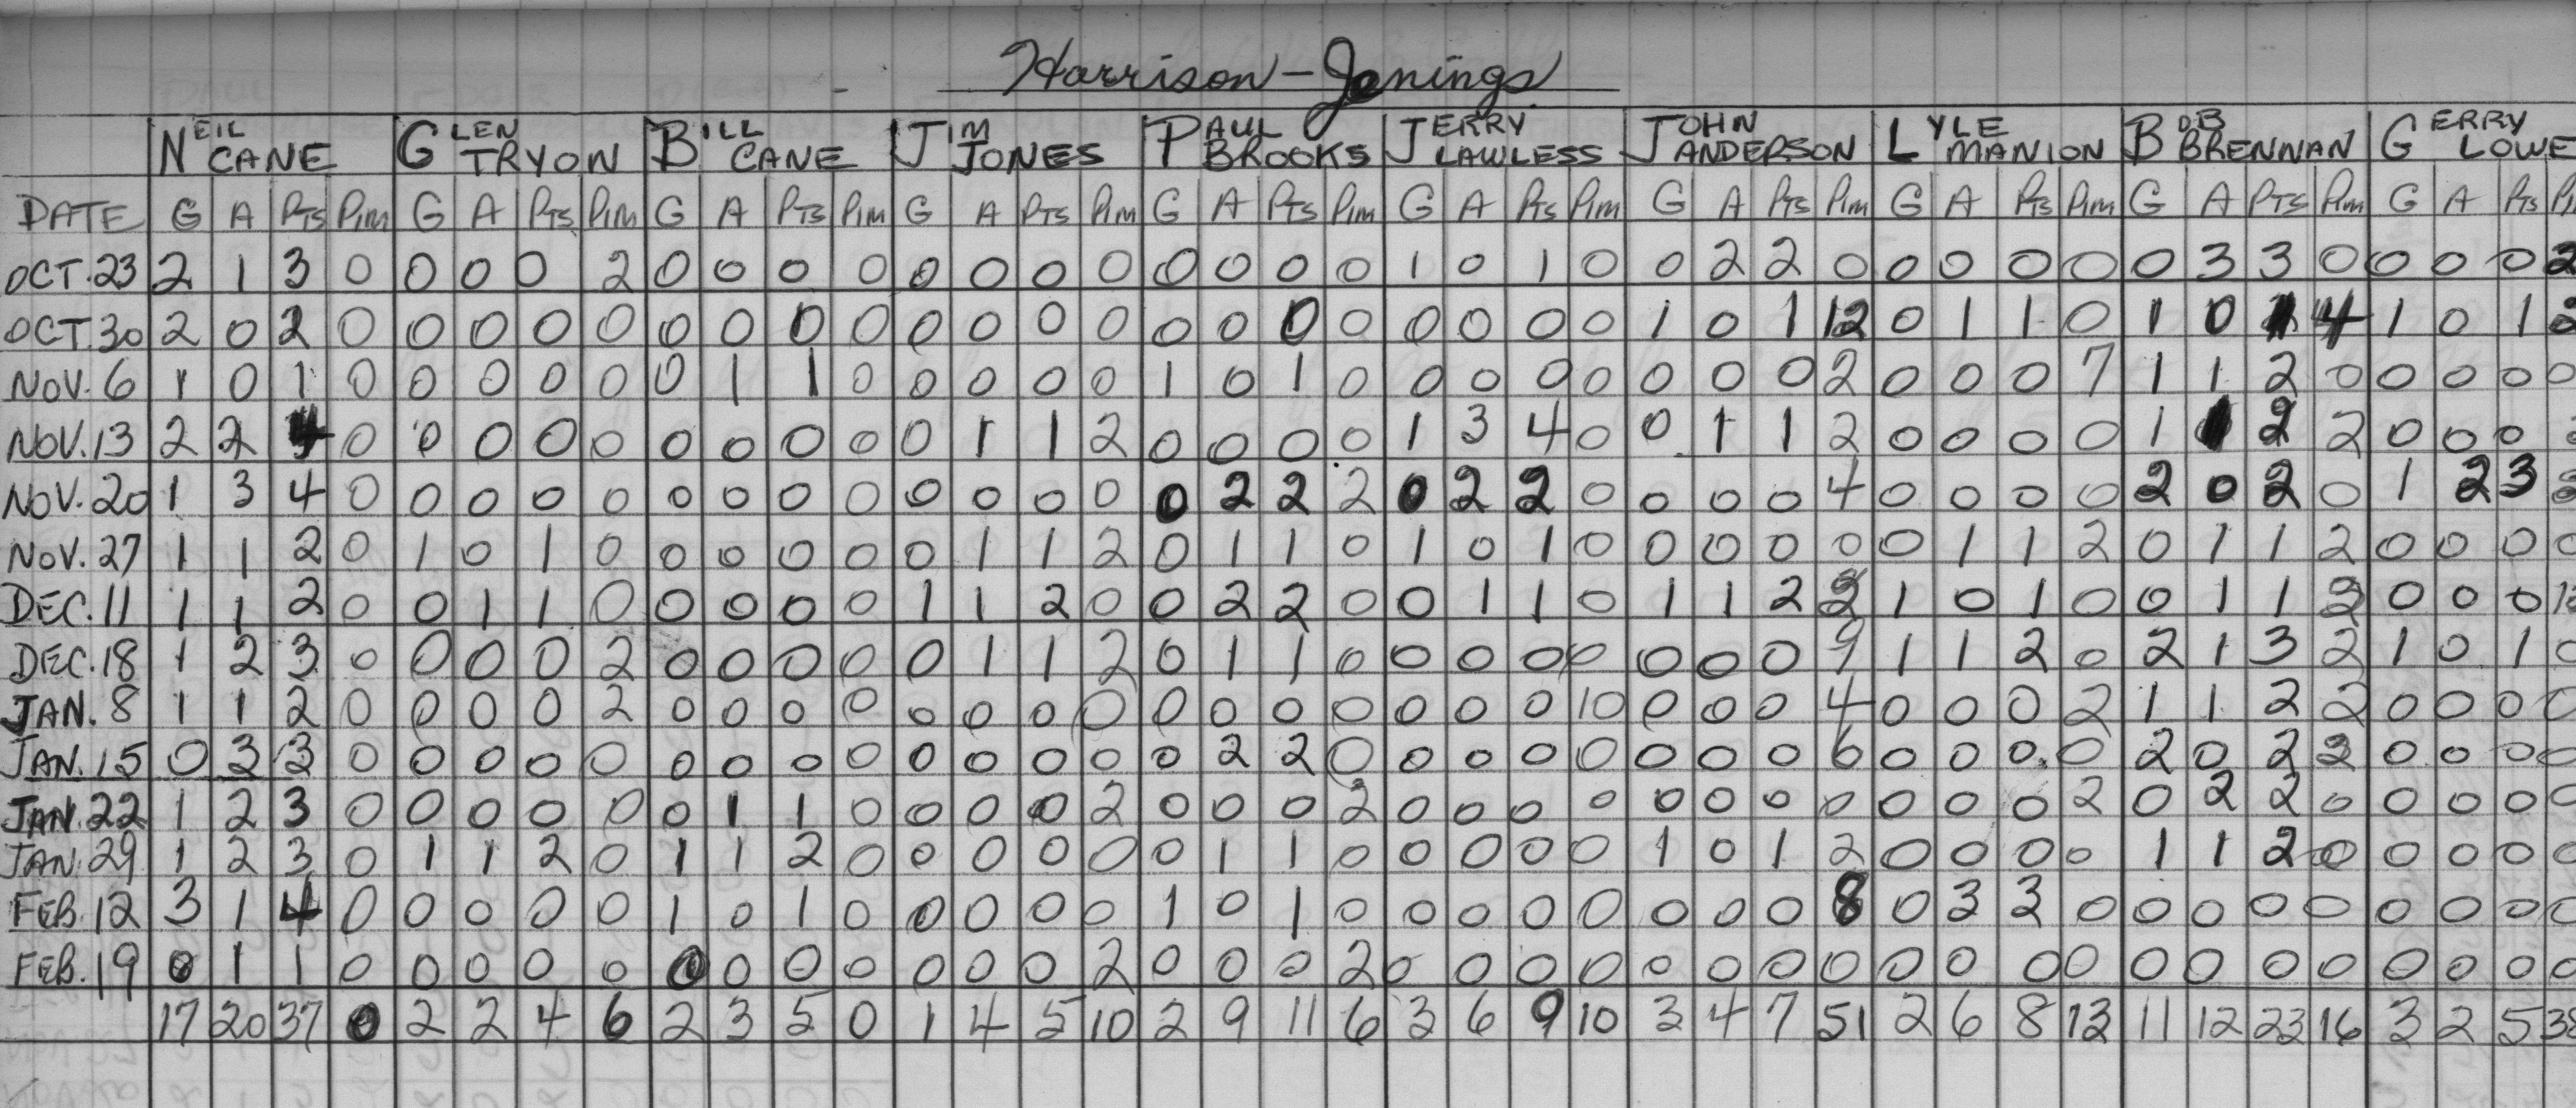 Harrison-Jenings
NEIL CANE GLEN TRYON BILL CANE JIM JONES PAUL BROOKS JERRY LAWLESS JOHN ANDERSON LYLE MANION BOB BRENNAN GERRY LOWE
DATE G A PTS PIM G A PTS PIM G A PTS PIM G A PTS PIM G A PTS PIM G A PTS PIM G A PTS PIM G A PTS PIM G A PTS PIM G A PTS
OCT. 23 2 1 3 0 0 0 0 2 0 0 0 0 0 0 0 0 0 0 0 0 1 0 1 0 0 2 2 0 0 0 0 0 0 3 3 0 0 0 0 2
OCT. 30 2 0 2 0 0 0 0 0 0 0 0 0 0 0 0 0 0 0 0 0 0 0 0 0 1 0 1 12 0 1 1 0 1 0 1 4 1 0 1 2
NOV. 6 1 0 1 0 0 0 0 0 0 1 1 0 0 0 0 0 1 0 1 0 0 0 0 0 0 0 0 2 0 0 0 7 1 1 2 0 0 0 0 0
NOV. 13 2 2 4 0 0 0 0 0 0 0 0 0 0 1 1 2 0 0 0 0 1 3 4 0 0 1 1 2 0 0 0 0 1 1 2 2 0 0 0
NOV. 20 1 3 4 0 0 0 0 0 0 0 0 0 0 0 0 0 0 2 2 2 0 2 2 0 0 0 0 4 0 0 0 0 2 0 2 0 1 2 3
NOV. 27 1 1 2 0 1 0 1 0 0 0 0 0 0 1 1 2 0 1 1 0 1 0 1 0 0 0 0 0 0 1 1 2 0 1 1 2 0 0 0 0
DEC. 11 1 1 2 0 0 1 1 0 0 0 0 0 1 1 2 0 0 2 2 0 0 1 1 0 1 1 2 2 1 0 1 0 0 1 1 2 0 0 0
DEC. 18 1 2 3 0 0 0 0 2 0 0 0 0 0 1 1 2 0 1 1 0 0 0 0 0 0 0 0 9 1 1 2 0 2 1 3 2 1 0 1 0
JAN. 8 1 1 2 0 0 0 0 2 0 0 0 0 0 0 0 0 0 0 0 0 0 0 0 10 0 0 0 4 0 0 0 2 1 1 2 2 0 0 0 0
JAN. 15 0 3 3 0 0 0 0 0 0 0 0 0 0 0 0 0 0 2 2 0 0 0 0 0 0 0 0 6 0 0 0 0 2 0 2 2 0 0 0 0
JAN. 22 1 2 3 0 0 0 0 0 0 1 1 0 0 0 0 2 0 0 0 2 0 0 0 0 0 0 0 0 0 0 0 2 0 2 2 0 0 0 0 0
JAN. 29 1 2 3 0 1 1 2 0 1 1 2 0 0 0 0 0 0 1 1 0 0 0 0 0 1 0 1 2 0 0 0 0 1 1 2 0 0 0 0 0
FEB. 12 3 1 4 0 0 0 0 0 1 0 1 0 0 0 0 0 1 0 1 0 0 0 0 0 0 0 0 8 0 3 3 0 0 0 0 0 0 0 0 0
FEB. 19 0 1 1 0 0 0 0 0 0 0 0 0 0 0 0 2 0 0 0 2 0 0 0 0 0 0 0 0 0 0 0 0 0 0 0 0 0 0 0 0
17 20 37 0 2 2 4 6 2 3 5 0 1 4 5 10 2 9 11 6 3 6 9 10 3 4 7 51 2 6 8 13 11 12 23 16 3 2 5 38